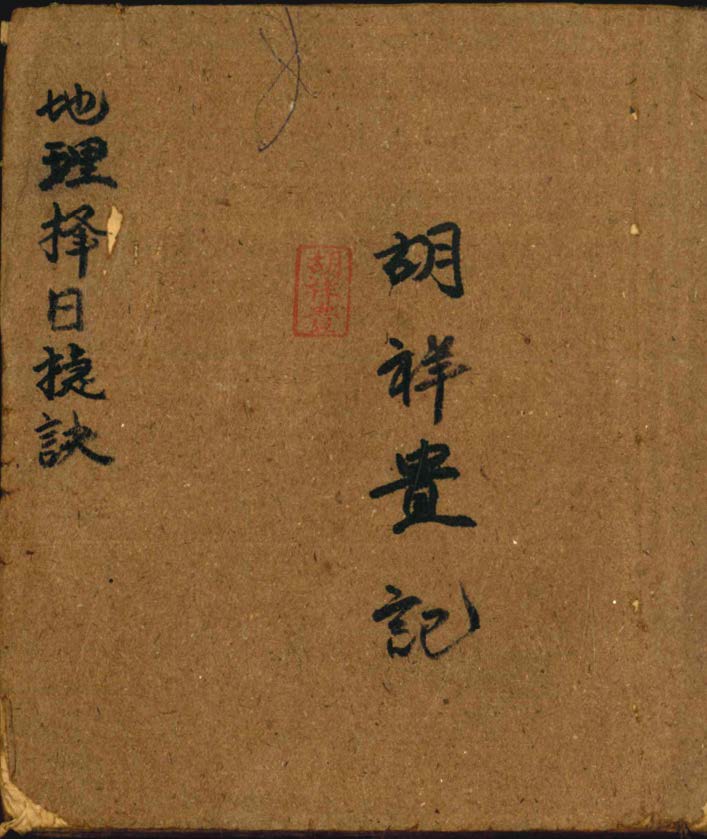 胡祥貴記
胡祥貴
地理择日捷訣